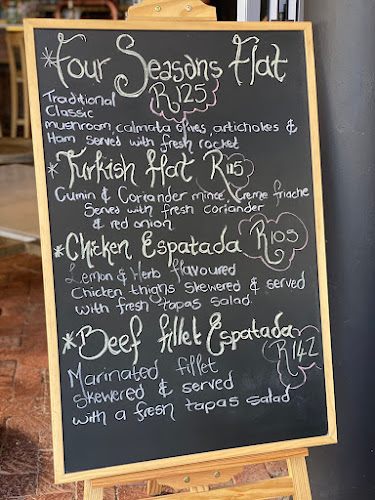 *Four Seasons Flat
R125
Traditional
Classic
mushroom, calmata olives, artichokes &
Ham served with fresh rocket
*Turkish flat R115
Cumin & Coriander mince, creme friache
Served with fresh coriander
& red onion
*Chicken Espatada R105
Lemon & Herb flavoured
Chicken thighs skewered & served
with fresh tapas salad
*Beef fillet Espatada
R142
Marinated fillet
skewered & served
with a fresh tapas salad